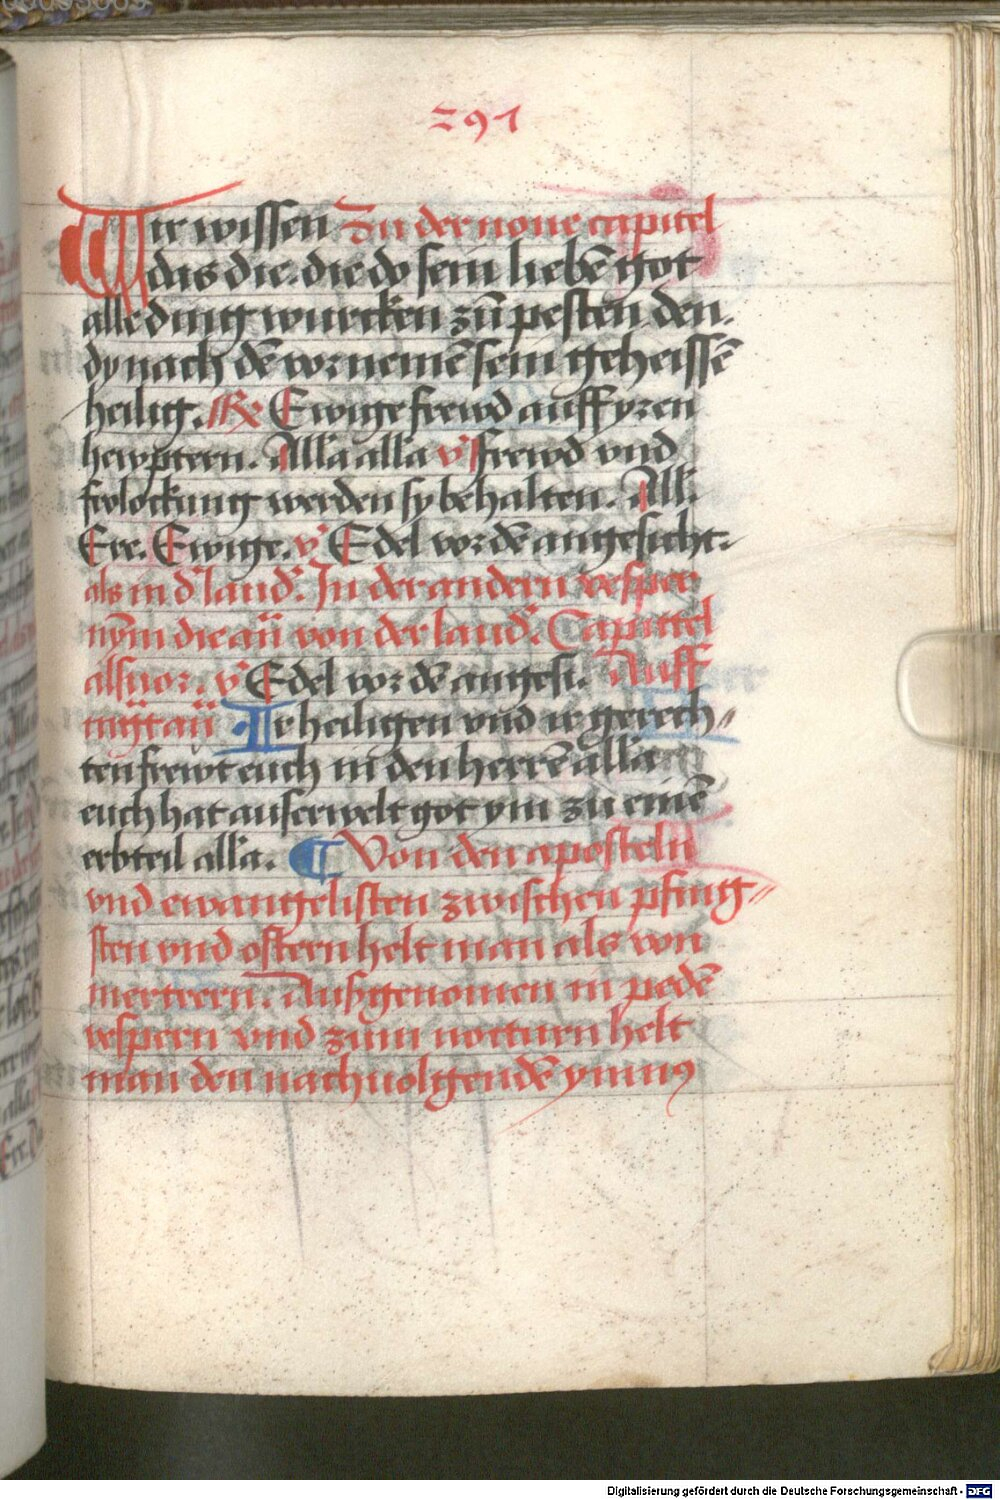 291
Wir wissen Zu der none capitel
das die. die do sein liebē got
alle ding wurcken zū pesten. den.
dy nach dē vornemē sein geheissē
heilig. Rx Ewige frewd auff yren
hewptern. Alla alla v̕ frewd vnd
frolockung werden sy behalten. All.
Ere. Ewige. v̕ Edel vor dē angesicht.
als in d̕ laud̕. In der andern vesper
nym die añ von der laud̕. Capittel
als vor. v̕ Edel vor dē angesi. Auff
mg̃t añ Ir heiligen vnd ir gerech〃
ten frewt euch in den herrē alla
euch hat auserwelt got ym zu einē
erbteil alla. ¶ Von den aposteln
vnd ewangelisten zwischen pfing〃
sten vnd ostern helt man als von
mertrern. Ausgenomen in pedē
vespern vnd zum notturn helt
man den nachuolgendē ymnꝰ
Digitalisierung gefördert durch die Deutsche Forschungsgemeinschaft - DFG